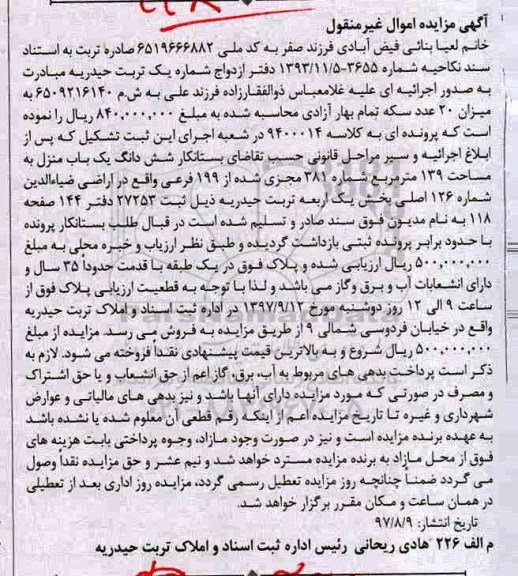 آگهی مزایده اموال غیرمنقول
خانم لعیا بنائی فیض آبادی فرزند صفر به کد ملی ۶۵۱۹۶۶۶۸۸۲ صادره تربت به استناد
سند نکاحیه شماره ۳۶۵۵-۱۳۹۳/۱۱/۵ دفتر ازدواج شماره یک تربت حیدریه مبادرت
به صدور اجرائیه ای علیه غلامعباس ذوالفقارزاده فرزند علی به ش.م ۶۵۰۹۲۱۶۱۴۰ به
میزان ۲۰ عدد سکه تمام بهار آزادی محاسبه شده به مبلغ ۸۴۰,۰۰۰,۰۰۰ ریال را نموده
است که پرونده ای به کلاسه ۹۴۰۰۰۱۴ در شعبه اجرای این ثبت تشکیل که پس از
ابلاغ اجرائیه و سیر مراحل قانونی حسب تقاضای بستانکار شش دانگ یک باب منزل به
مساحت ۱۳۹ مترمربع شماره ۳۸۱ مجزی شده از ۱۹۹ فرعی واقع در اراضی ضیاءالدین
شماره ۱۲۶ اصلی بخش یک اربعه تربت حیدریه ذیل ثبت ۲۷۲۵۳ دفتر ۱۴۴ صفحه
۱۱۸ به نام مدیون فوق سند صادر و تسلیم شده است در قبال طلب بستانکار پرونده
با حدود برابر پرونده ثبتی بازداشت گردیده و طبق نظر ارزیاب و خبره محلی به مبلغ
۵۰۰,۰۰۰,۰۰۰ ریال ارزیابی شده و پلاک فوق در یک طبقه با قدمت حدوداً ۳۵ سال و
دارای انشعابات آب و برق وگاز می باشد و لذا با توجه به قطعیت ارزیابی پلاک فوق از
ساعت ۹ الی ۱۲ روز دوشنبه مورخ ۱۳۹۷/۹/۱۲ در اداره ثبت اسناد و املاک تربت حیدریه
واقع در خیابان فردوسی شمالی ۹ از طریق مزایده به فروش می رسد. مزایده از مبلغ
۵۰۰,۰۰۰,۰۰۰ ریال شروع و به بالاترین قیمت پیشنهادی نقدا فروخته می شود. لازم به
ذکر است پرداخت بدهی های مربوط به آب، برق، گاز اعم از حق انشعاب و یا حق اشتراک
و مصرف در صورتی که مورد مزایده دارای آنها باشد و نیز بدهی های مالیاتی و عوارض
شهرداری و غیره تا تاریخ مزایده اعم از اینکه رقم قطعی آن معلوم شده یا نشده باشد
به عهده برنده مزایده است و نیز در صورت وجود مازاد، وجوه پرداختی بابت هزینه های
فوق از محل مازاد به برنده مزایده مسترد خواهد شد و نیم عشر و حق مزایده نقداً وصول
می گردد ضمناً چنانچه روز مزایده تعطیل رسمی گردد، مزایده روز اداری بعد از تعطیلی
در همان ساعت و مکان مقرر برگزار خواهد شد.
تاریخ انتشار: ۹۷/۸/۹
م الف ۲۲۶ هادی ریحانی رئیس اداره ثبت اسناد و املاک تربت حیدریه